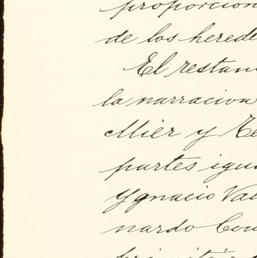 proporcion
de los herede
El restan
la narracion
Mier y Te
partes igua
Ygnacio Vas
nardo Cou